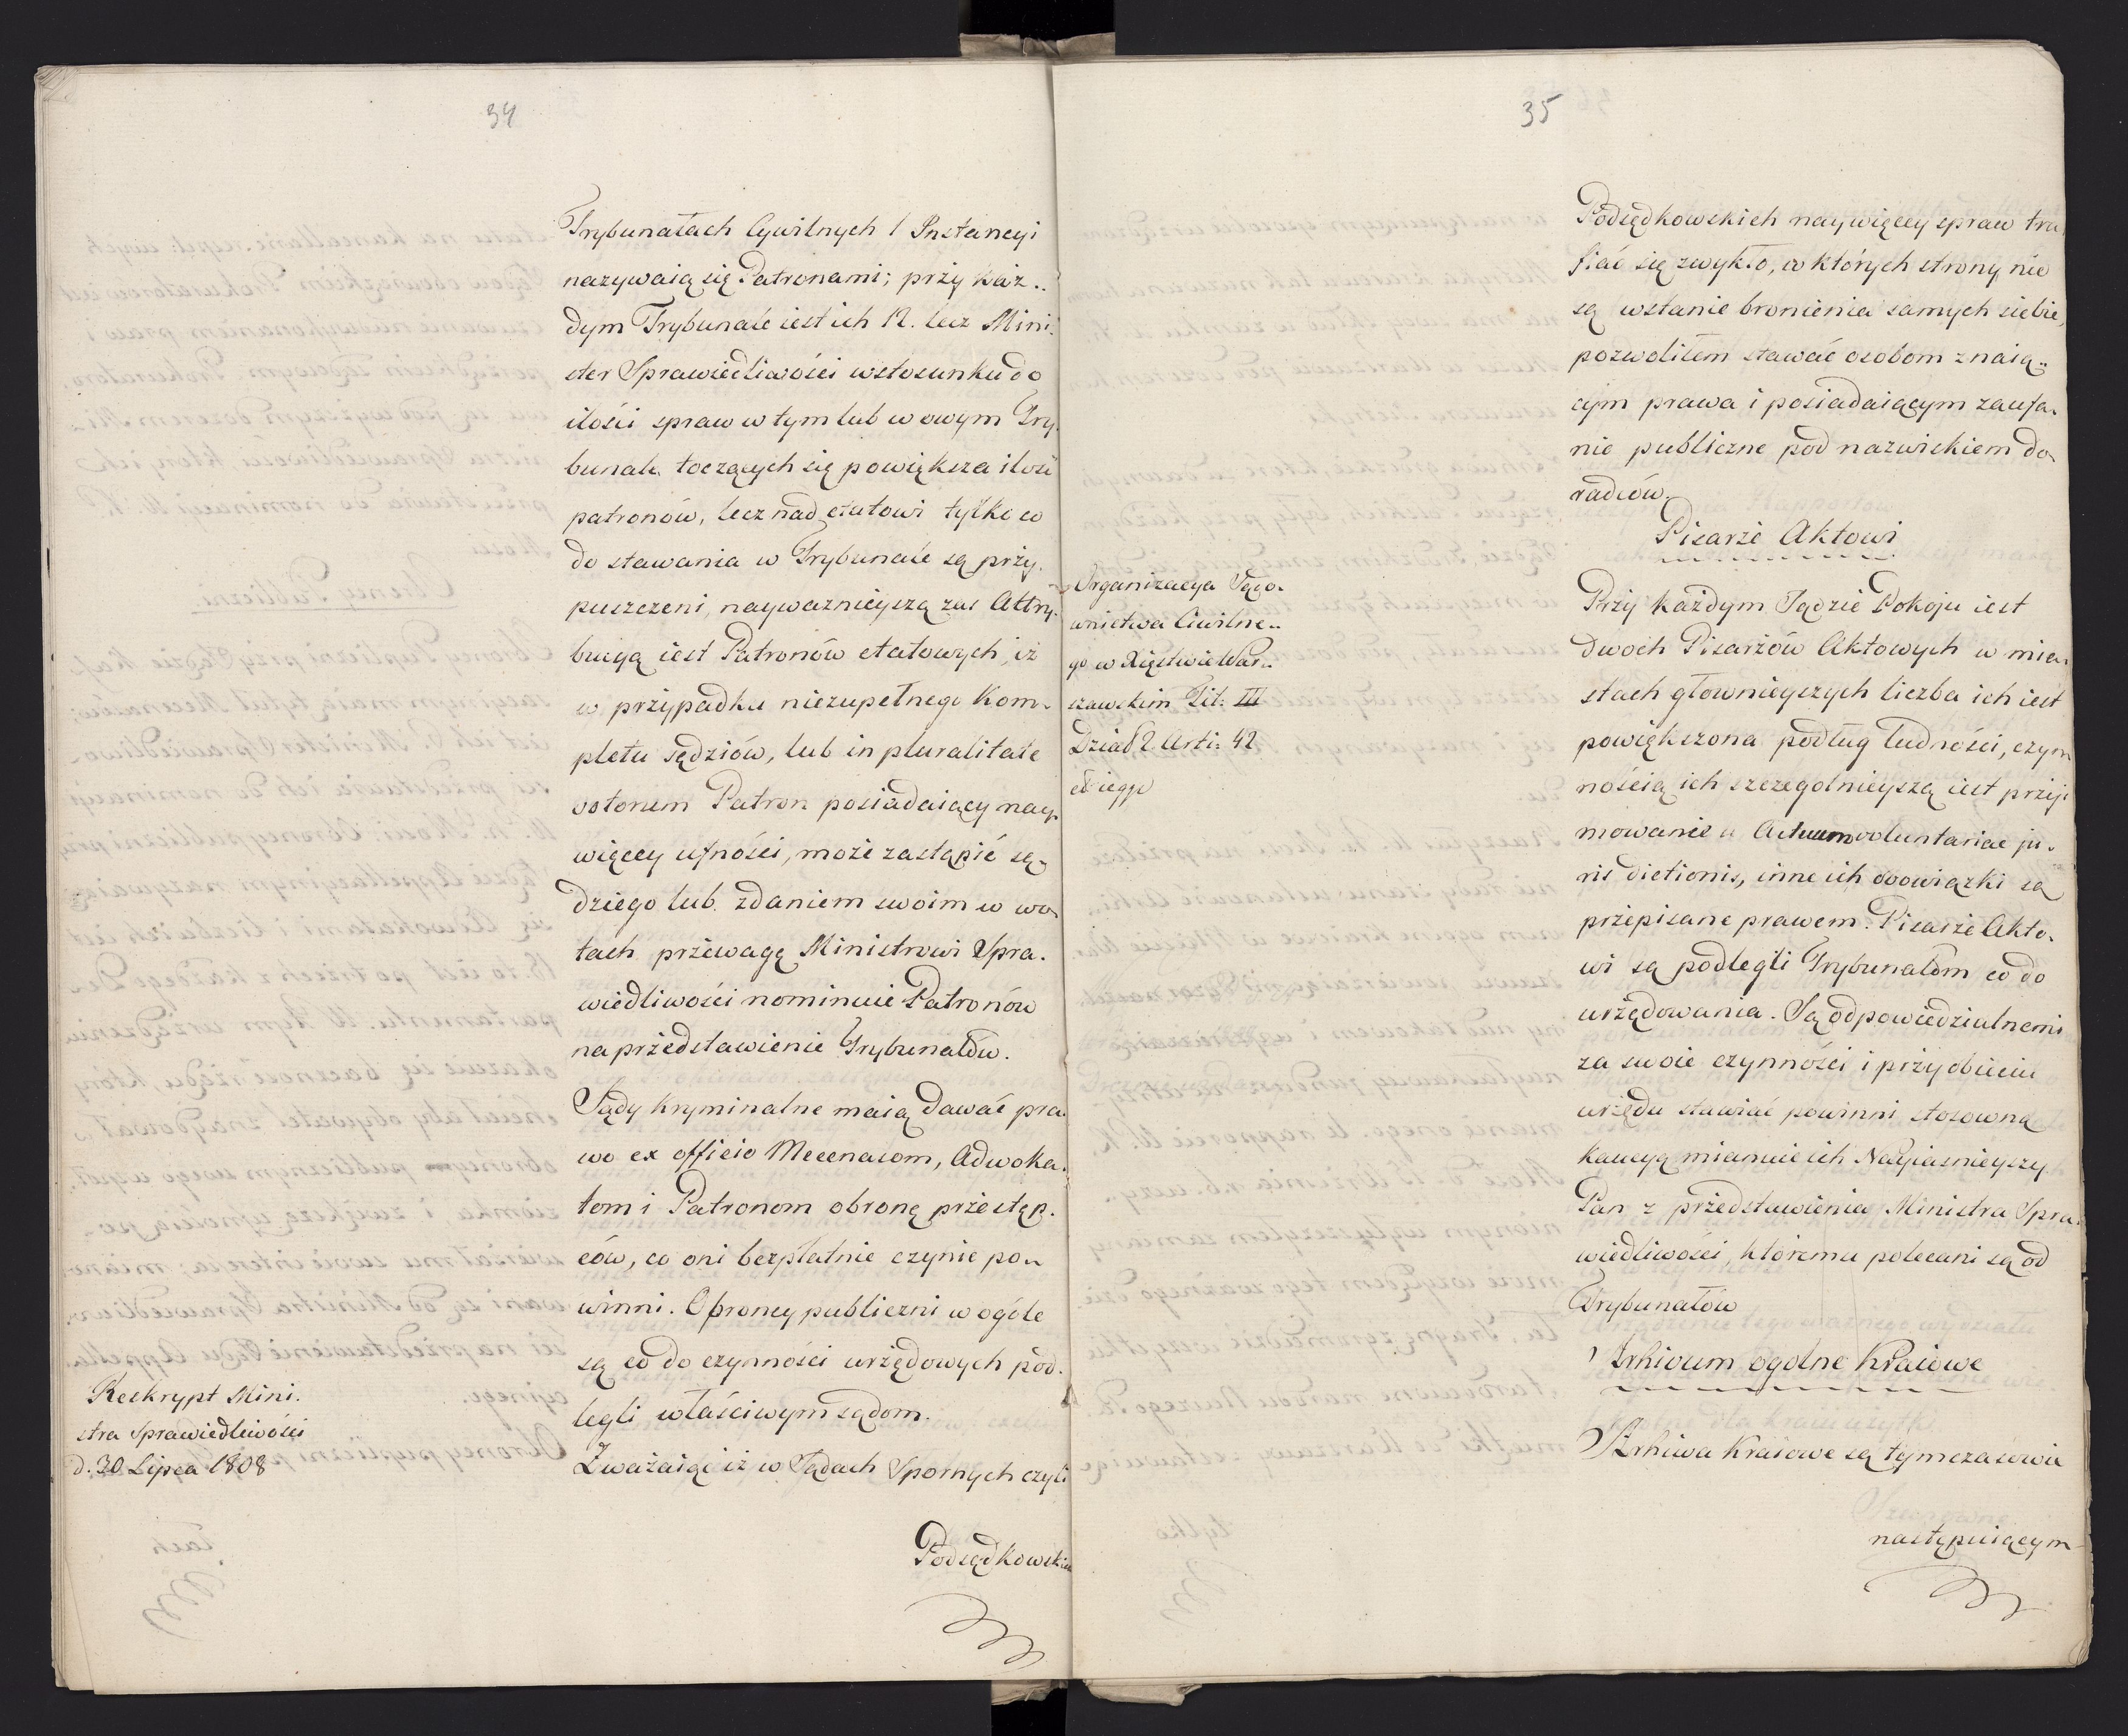 34
Trybunałach Cywilnych I Instancyi
nazywaią się Patronami; przy każ..
dym Trybunale iest ich 12. lecz Mini.
ster Sprawiedliwości w stosunku do
ilości spraw w tym lub w owym Try.
bunale toczących się powiększa ilość
patronów, lecz nad etatowi tylko co
do stawania w Trybunale są przy.
puszczeni, nayważnieyszą zaś Attry.
bucyą iest Patronów etatowych, iż
w przypadku niezupełnego Kom.
pletu sędziów, lub in pluralitate
votorum Patron posiadaiący nay.
więcey ufności, może zastąpić sę.
dziego lub zdaniem swoim w wo.
tach przewagę Ministrowi Spra.
wiedliwości nominuie Patronów
na przedstawienie Trybunałów.
Sądy kryminalne maią dawać pra.
wo ex officio Mecenasom, Adwoka.
tom i Patronom obronę przestęp.
ców, co oni bezpłatnie czynić po..
winni. Obroncy publiczni w ogóle
są co do czynności urzędowych pod.
legli właściwym sądom.
Reskrypt Mini.
stra Sprawiedliwości
d. 30 Lipca 1808
Zważaiąc iż w Sądach Spornych czyli
Podsędkowskich
35
Podsędkowskich naywięcey spraw tra.
fiać się zwykło, w których strony nie
są wstanie bronienia samych siebie,
pozwoliłem stawać osobom znaią..
cym prawa i posiadaiącym zaufa.
nie publiczne pod nazwiskiem do.
radców.
Pisarze Aktowi
Organizacya Sądo.
wnictwa Ciwilne..
go w Xięstwie War..
szawskim Tit: III
Dział 2 Arti: 42
Przy każdym Sądzie Pokoju iest
dwoch Pisarzów Aktowych w mia.
stach głownieyszych liczba ich iest
powiększona podług ludności, czyn
nością ich szczegolnieyszą iest przyi.
mowanie Actuum voluntariae ju.
ris dictionis, inne ich obowiązki są
przepisane prawem. Pisarze Akto.
wi są podlegli Trybunałom co do
urzędowania. Są odpowiedzialnemi
za swoie czynności i przy obięciu
urzędu stawiać powinni stosowną
kaucyą mianuie ich Nayiasnieyszy
Pan z przedstawienia Ministra Spra.
wiedliwości, któremu polecani są od
Trybunałów
Arhivum ogolne Kraiowe
Arhiwa Kraiowe są tymczasowie
następuiącym